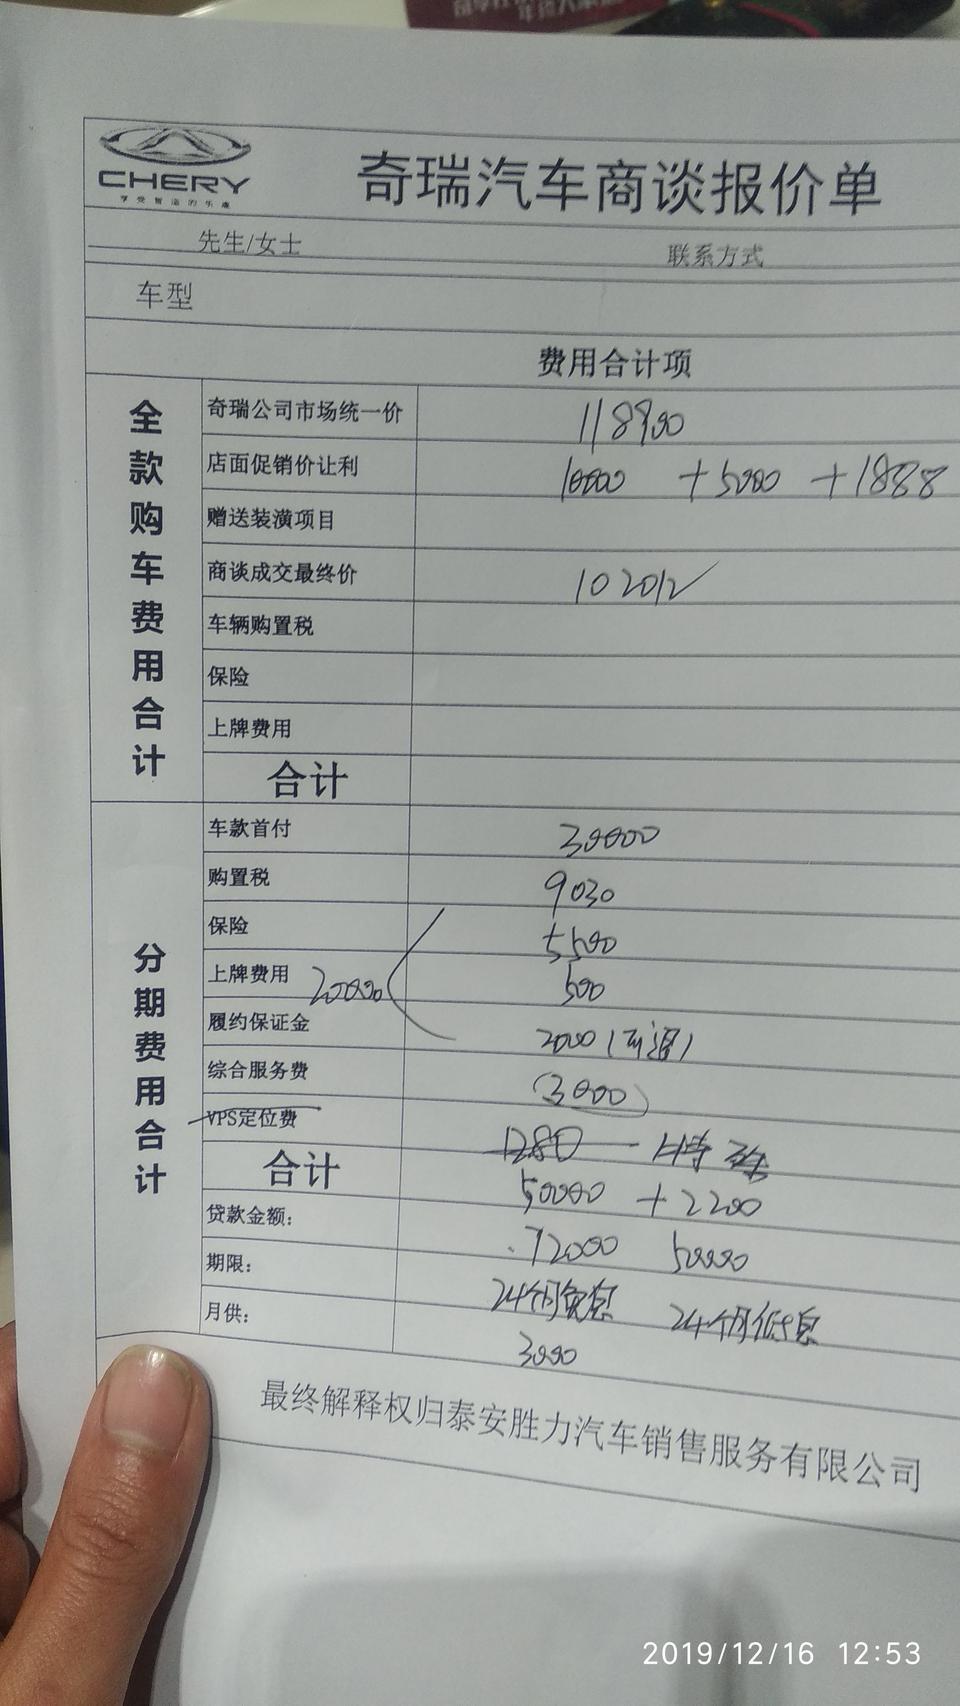 CHERY
享受智造的乐趣
奇瑞汽车商谈报价单
先生/女士 联系方式
车型
费用合计项
全款购车费用合计
奇瑞公司市场统一价 118900
店面促销价让利 10000 +5000 +1888
赠送装潢项目
商谈成交最终价 102012
车辆购置税
保险
上牌费用
合计
分期费用合计
车款首付 30000
购置税 9030
保险 5500
上牌费用 500
20000
履约保证金 2000(可退)
综合服务费 (3000)
VPS定位费 1280
合计 50000 +2200
贷款金额: 72000 50000
期限: 24个月免息 24个月低息
月供: 3000
最终解释权归泰安胜力汽车销售服务有限公司
2019/12/16 12:53